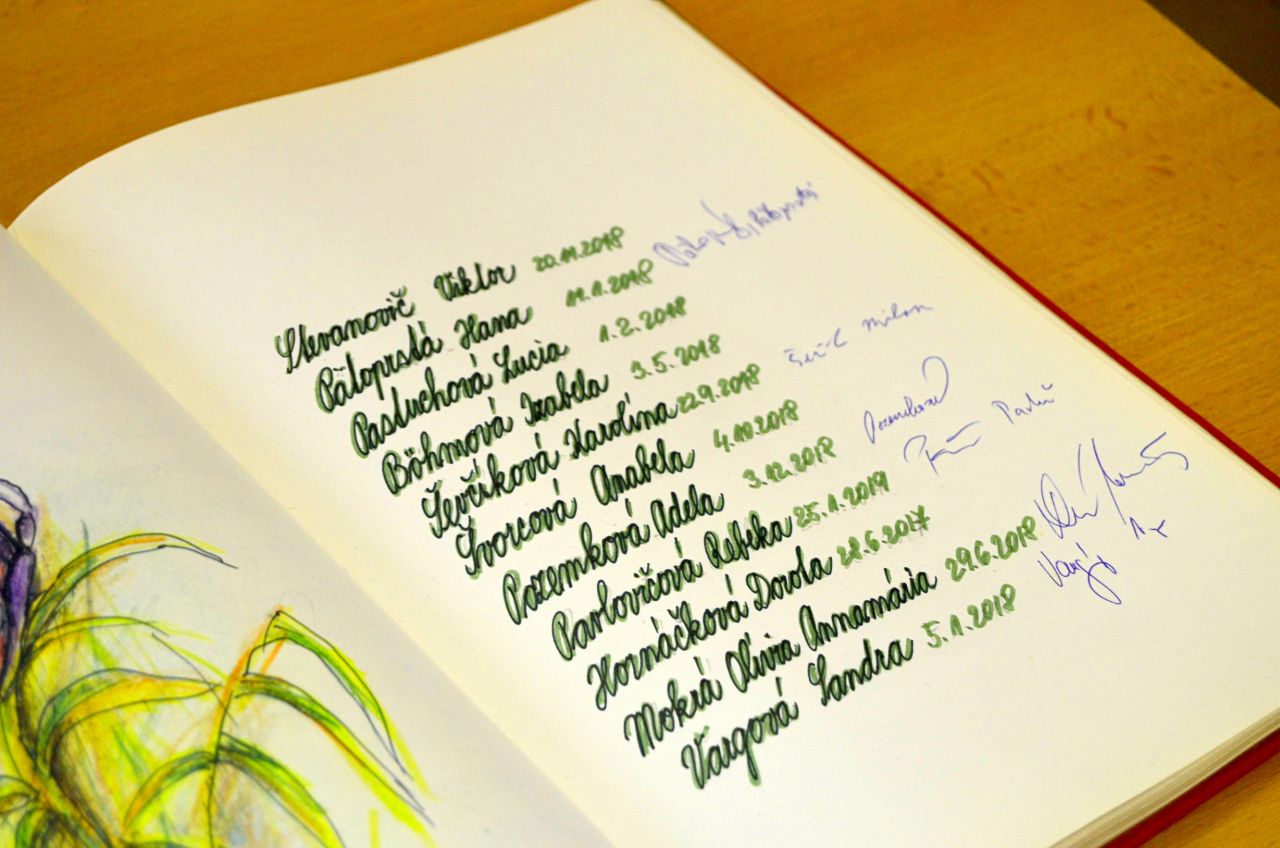 Stevanovič Viktor 20.11.2018
Pätoprstá Hana 11.1.2018
Pastuchová Lucia 1.2.2018
Böhmová Izabela 3.5.2018
Ševčíková Karolína 22.9.2018
Švorcová Anabela 4.10.2018
Pozemková Adela 3.12.2018
Pavlovičová Rebeka 25.1.2019
Hornáčková Dorota 28.6.2017
Mokrá Olívia Annamária 29.6.2018
Vargová Sandra 5.1.2018